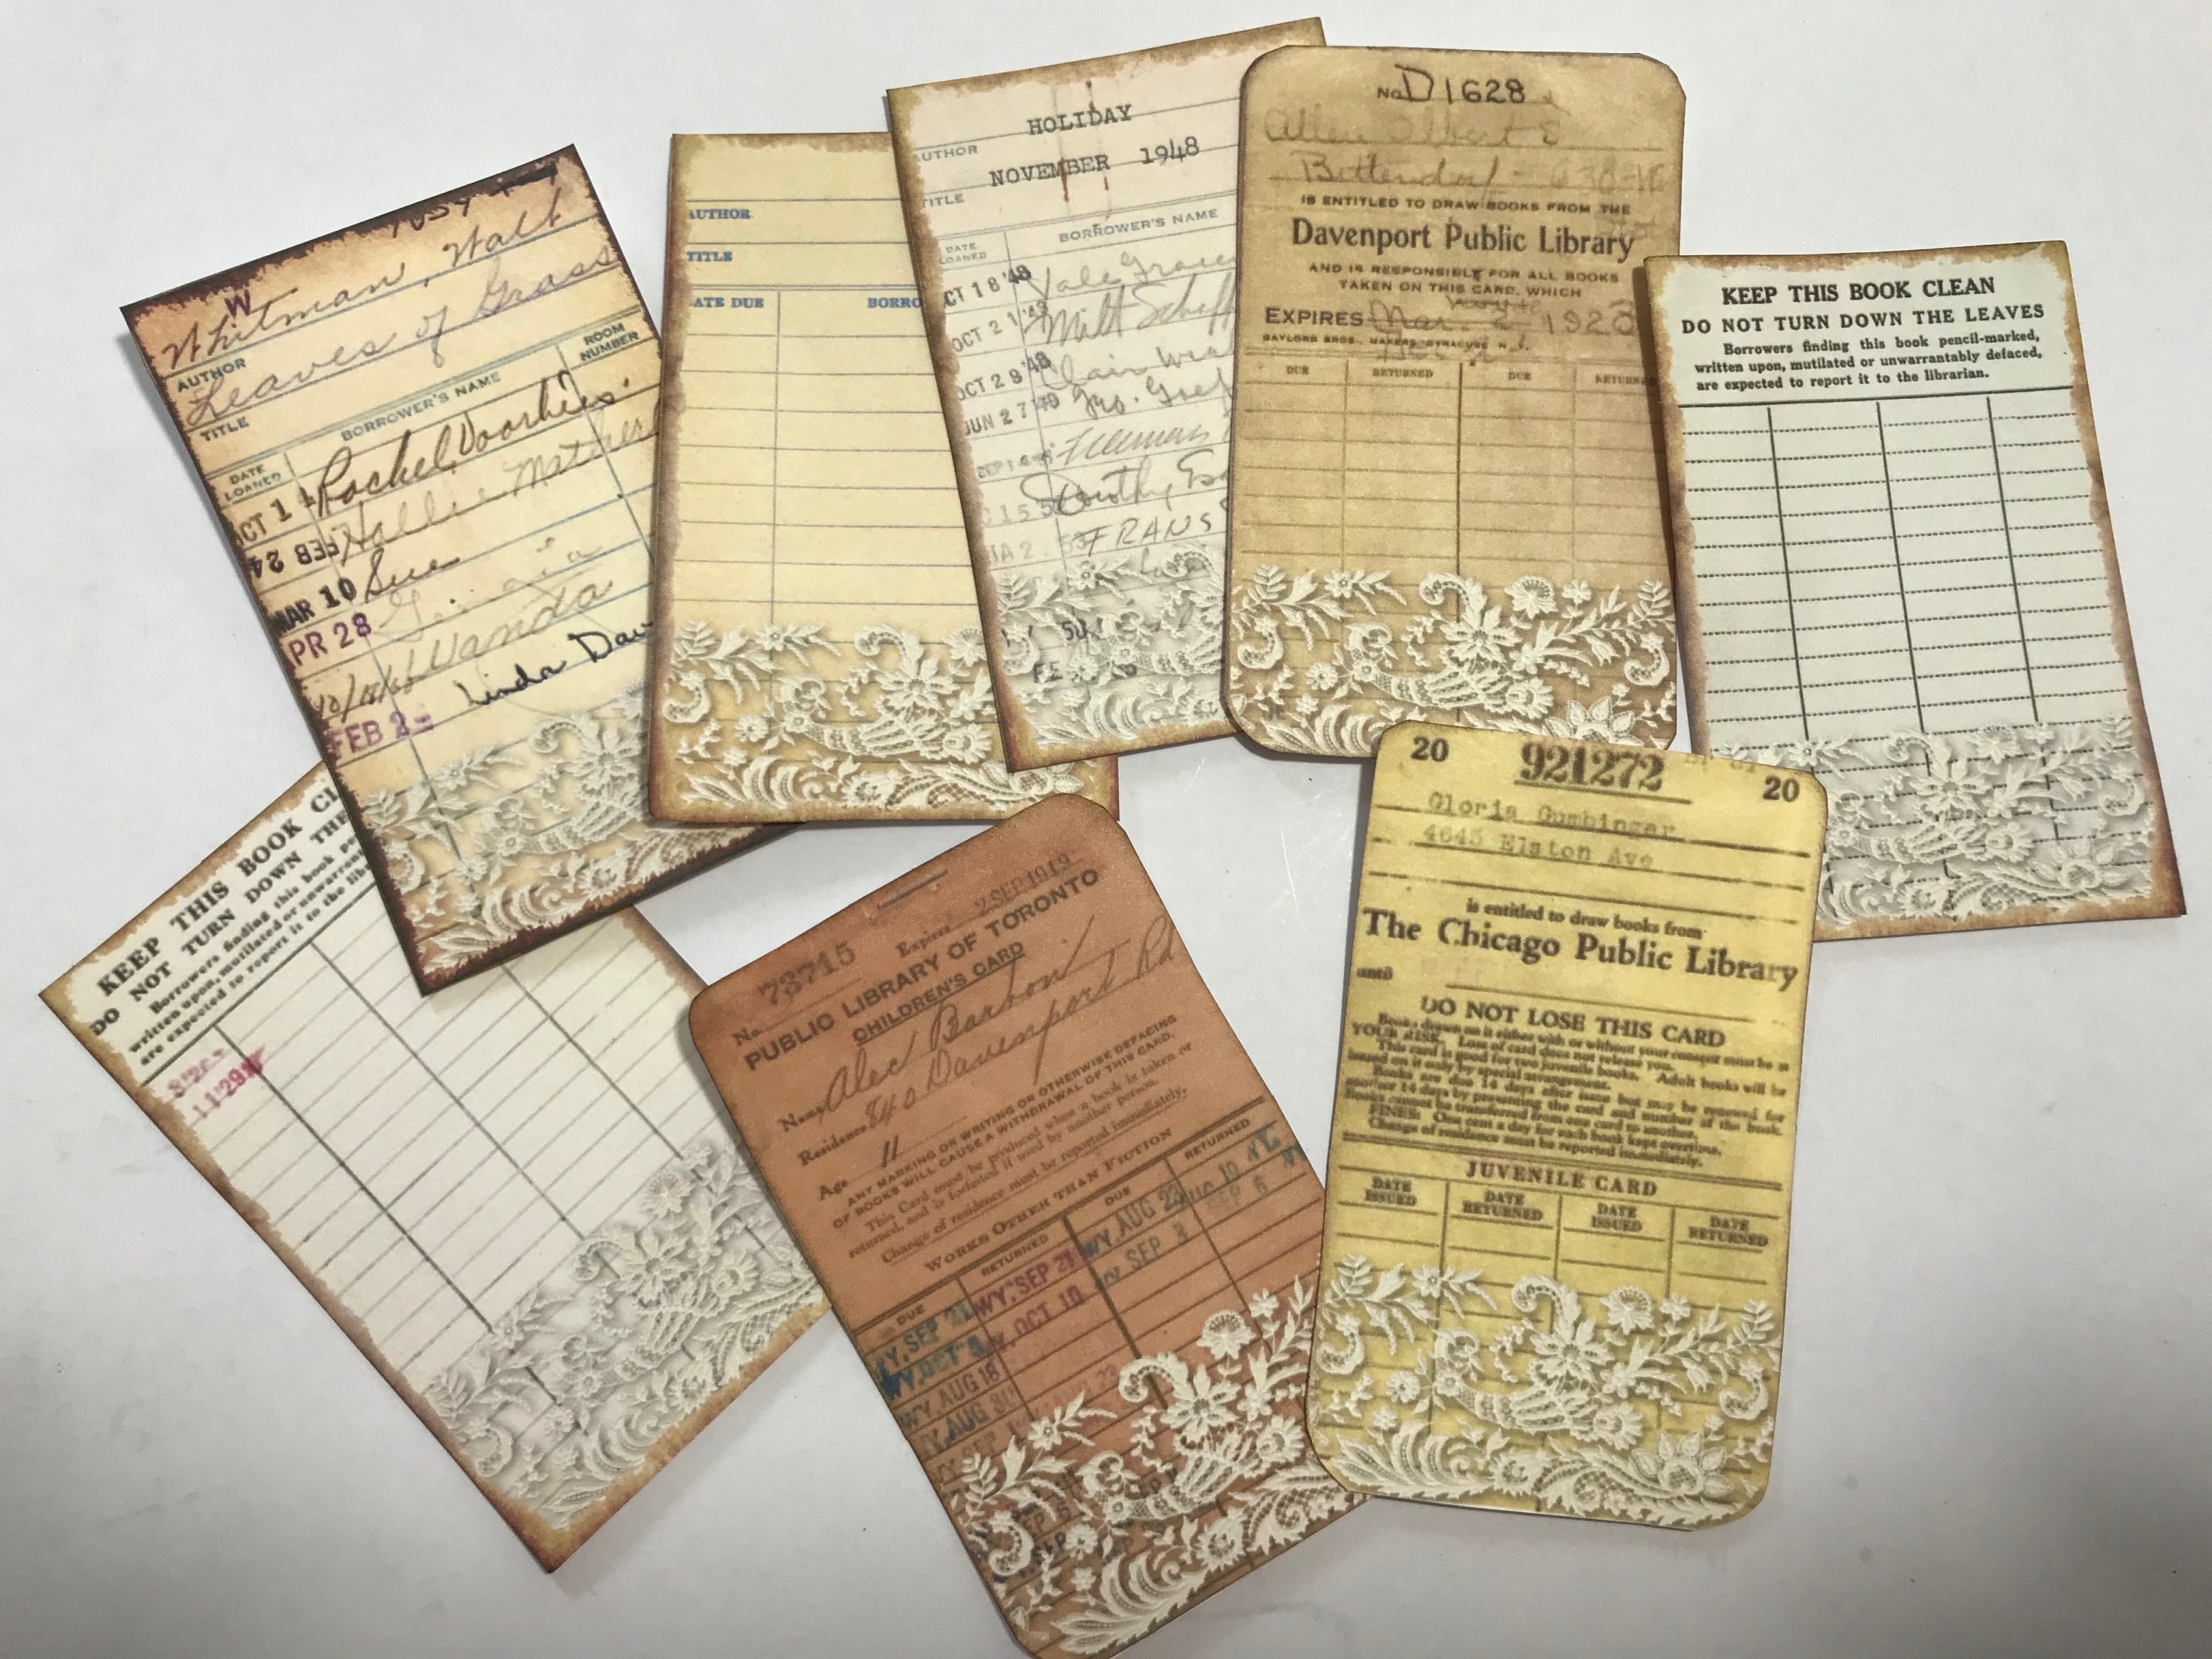 Whitman, Walt
AUTHOR
Leaves of Grass
TITLE
DATE LOANED
BORROWER'S NAME
ROOM NUMBER
OCT 1 1 Rachel Voorhies.
FEB 24 Hallie Mather
MAR 10 Sue
APR 28
Wanda
FEB 2 Linda Dav
AUTHOR
TITLE
DATE DUE
BORRO
HOLIDAY
AUTHOR
NOVEMBER 1948
TITLE
DATE LOANED
BORROWER'S NAME
OCT 18 '48
OCT 21 '48 Milt
OCT 28 '48
JUN 27 '49
TRANS
No. D1628
Allen Albert E
Bettendorf
IS ENTITLED TO DRAW BOOKS FROM THE
Davenport Public Library
AND IS RESPONSIBLE FOR ALL BOOKS
TAKEN ON THIS CARD, WHICH
EXPIRES Mar. 1923
GAYLORD BROS., MAKERS, SYRACUSE, N.Y.
DUE RETURNED DUE RETURNE
KEEP THIS BOOK CLEAN
DO NOT TURN DOWN THE LEAVES
Borrowers finding this book pencil-marked,
written upon, mutilated or unwarrantably defaced,
are expected to report it to the librarian.
KEEP THIS BOOK CL
DO NOT TURN DOWN THE
Borrowers finding this book pe
written upon, mutilated or unwarran
are expected to report it to the lib
11'29
No. 73715 Expires 2 SEP 1919
PUBLIC LIBRARY OF TORONTO
CHILDREN'S CARD
Name Alec Barton
Residence 840 Davenport Rd
Age 11
ANY MARKING OR WRITING OR OTHERWISE DEFACING
OF BOOKS WILL CAUSE A WITHDRAWAL OF THIS CARD.
This Card must be produced when a book is taken or
returned, and is forfeited if used by another person.
Change of residence must be reported immediately.
WORKS OTHER THAN FICTION
DUE RETURNED DUE RETURNED
WY, SEP 21 WY, SEP 21 WY, AUG 23 AUG 10
WY, OCT 5 OCT 10 SEP 3 SEP 6
WY, AUG 18
WY, AUG 30
SEP 1
20 921272 20
Gloria Gumbinger
4645 Elston Ave
is entitled to draw books from
The Chicago Public Library
until
DO NOT LOSE THIS CARD
Books drawn on it either with or without your consent must be at
YOUR RISK. Loss of card does not release you.
This card is good for two juvenile books. Adult books will be
issued on it only by special arrangement.
Books are due 14 days after issue but may be renewed for
another 14 days by presenting the card and number of the book.
Books cannot be transferred from one card to another.
FINES: One cent a day for each book kept overtime.
Change of residence must be reported immediately.
JUVENILE CARD
DATE ISSUED DATE RETURNED DATE ISSUED DATE RETURNED